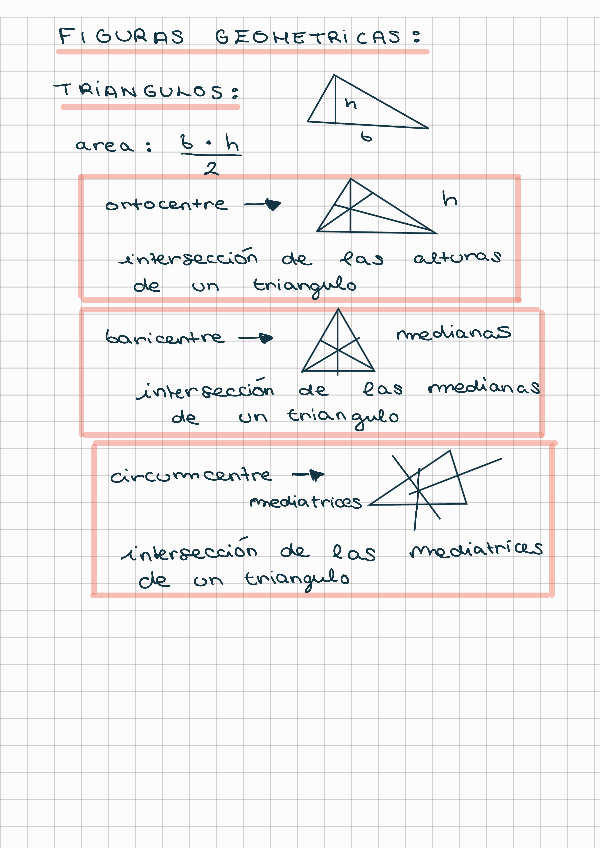 FIGURAS GEOMETRICAS:
TRIANGULOS:
h
b
area: b · h
2
ortocentre → h
intersección de las alturas
de un triangulo
baricentre → medianas
intersección de las medianas
de un triangulo
circumcentre →
mediatrices
intersección de las mediatrices
de un triangulo